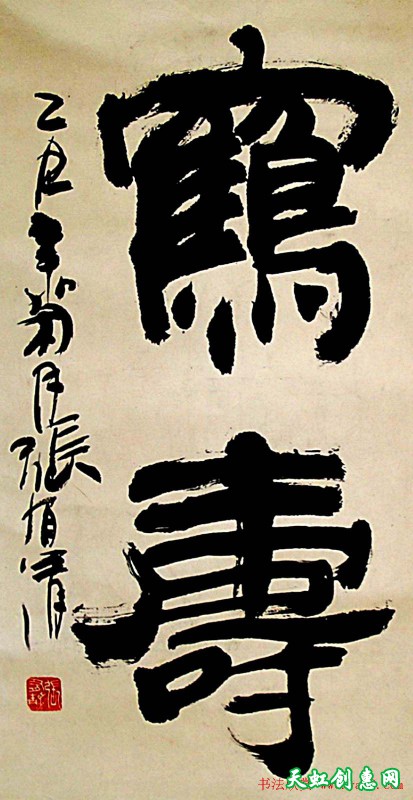 鶴壽
乙丑年菊月張
书法
天虹创惠网